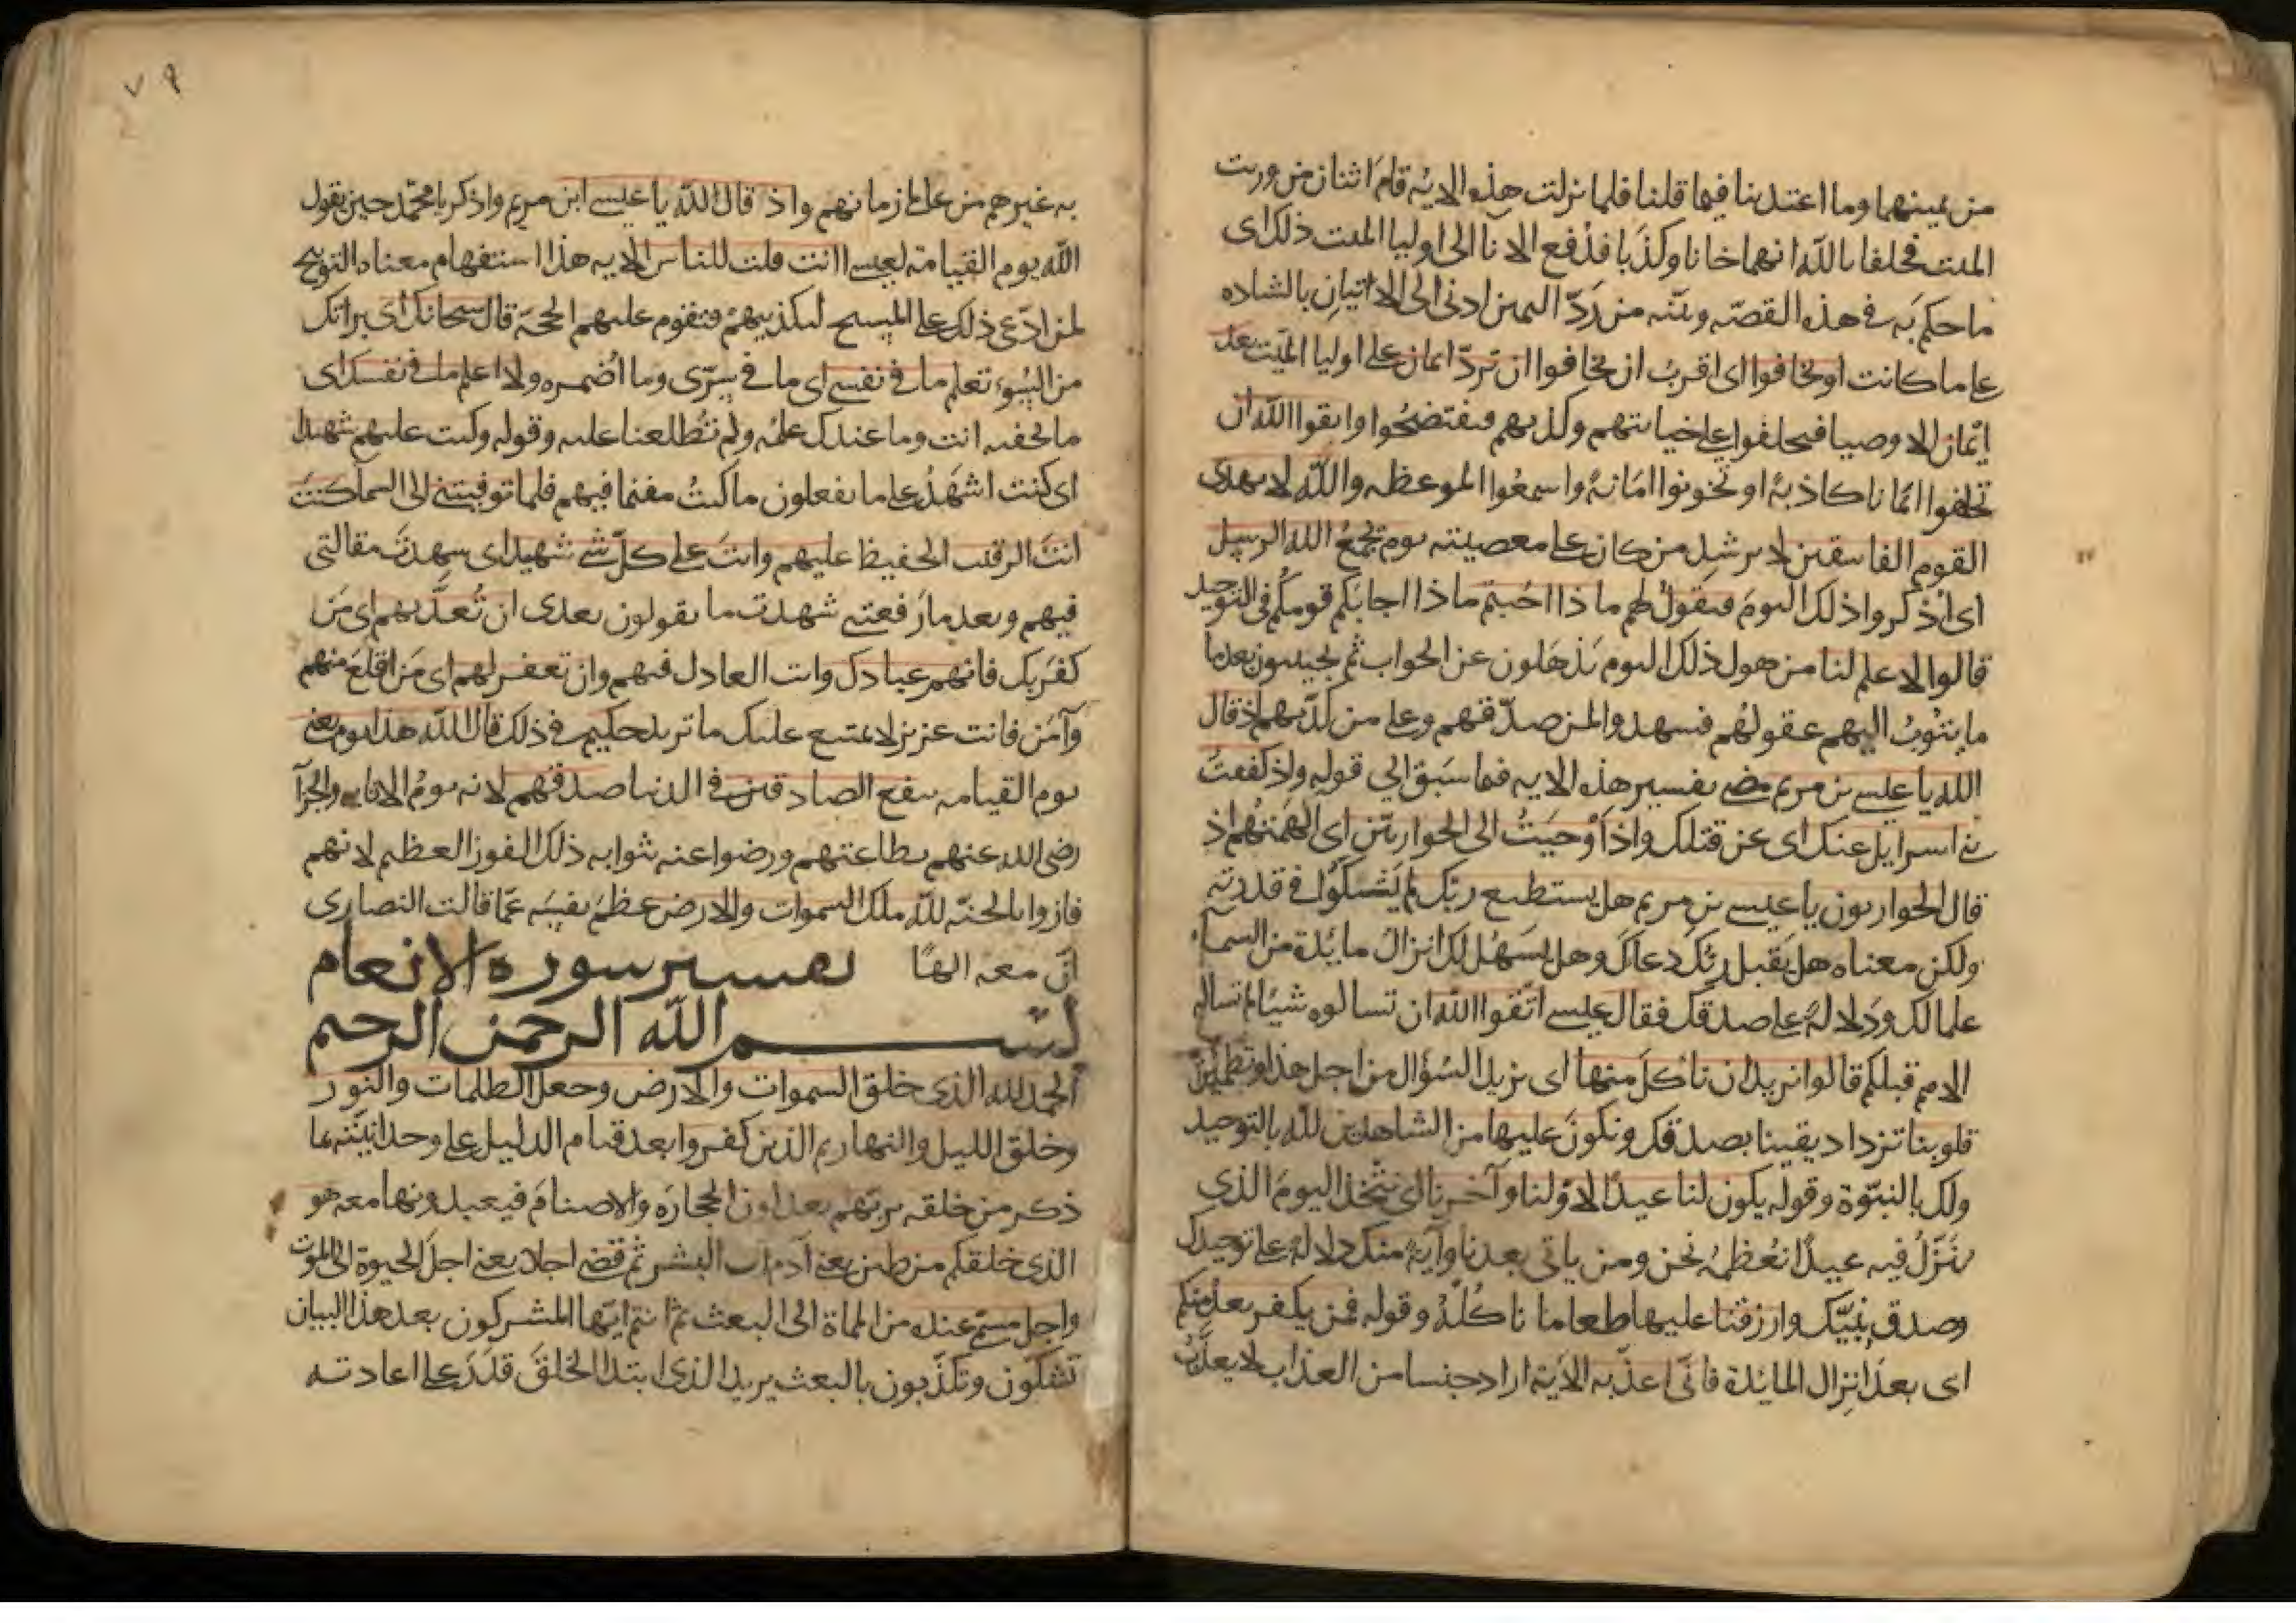 من يمينهما وما اعتدينا فيما قلنا فلما نزلت هذه الاية قام اثنان من ورثت
الميت فحلفا بالله انهما خانا وكذبا فدفع الانا الى اوليا الميت ذلك اى
ما حكم به فى هذه القصه وبينه من رد اليمين ادنى الى الاتيان بالشهاده
على ما كانت او يخافوا اى اقرب ان يخافوا ان ترد ايمان على اوليا الميت بعد
ايمان الاوصيا فيحلفوا على خيانتهم وكذبهم فيفتضحوا واتقوا الله ان
تحلفوا ايمانا كاذبة او تخونوا امانة واسمعوا الموعظه والله لا يهدى
القوم الفاسقين لا يرشد من كان على معصيته يوم يجمع الله الرسل
اى اذكروا ذلك اليوم فيقول لهم ماذا اجبتم ماذا اجابكم قومكم فى التوحيد
قالوا لا علم لنا من هول ذلك اليوم يذهلون عن الجواب ثم يجيبون بعد ما
ما يثوب اليهم عقولهم فيشهدو المن صدقهم وعلى من كذبهم اذ قال
الله يا عيسى بن مريم مضى تفسير هذه الايه فيما سبق الى قوله واذ كففت
بنى اسرايل عنك اى عن قتلك واذ اوحيت الى الحواريين اى الهمتهم اذ
قال الحواريون يا عيسى بن مريم هل يستطيع ربك لم يشكوا فى قدرته
ولكن معناه هل يقبل ربك دعاك وهل يسهل لك انزال مائدة من السماء
علما لك ودلالة على صدقك فقال عيسى اتقوا الله ان تسالوه شيئا لم تساله
الامم قبلكم قالوا نريد ان ناكل منها اى نريد السؤال من اجل هذا وتطمئن
قلوبنا نزداد يقينا بصدقك ونكون عليها من الشاهدين لله بالتوحيد
ولك بالنبوة وقوله يكون لنا عيدا لاولنا وآخرنا اى نتخذ اليوم الذى
تنزل فيه عيدا نعظمه نحن ومن ياتى بعدنا وآية منك دلالة على توحيدك
وصدق نبيك وارزقنا عليها طعاما ناكله وقوله فمن يكفر بعد منكم
اى بعد انزال المائدة فانى اعذبه الاية اراد جنسا من العذاب لا يعذب
٧٩
به غيرهم من عالمى زمانهم واذ قال الله يا عيسى ابن مريم واذكر يا محمد حين يقول
الله يوم القيامة لعيسى اانت قلت للناس الايه هذا استفهام معناه التوبيخ
لمن ادعى ذلك على المسيح ليكذبهم وتقوم عليهم الحجة قال سبحانك اى براتك
من السوء تعلم ما فى نفسى اى ما فى سرى وما اضمره ولا اعلم ما فى نفسك اى
ما تخفيه انت وما عندك علمه ولم تطلعنا عليه وقوله وكنت عليهم شهيدا
اى كنت اشهد على ما يفعلون ما كنت مقيما فيهم فلما توفيتنى الى السما كنت
انت الرقيب الحفيظ عليهم وانت على كل شى شهيد اى شهدت مقالتى
فيهم وبعد ما رفعتنى شهدت ما يقولون بعدى ان تعذبهم اى من
كفر بك فانهم عبادك وانت العادل فيهم وان تغفر لهم اى من اقلع منهم
وآمن فانت عزيز لا يمتنع عليك ما تريد حكيم فى ذلك قال الله هذا يوم يعنى
يوم القيامه ينفع الصادقين فى الدنيا صدقهم لانه يوم الاثابه والجزآ
رضى الله عنهم بطاعتهم ورضوا عنه بثوابه ذلك الفوز العظيم لانهم
فازوا بالجنه لله ملك السموات والارض عظم نفسه عما قالت النصارى
ان معه الها تفسير سورة الانعام
بسم الله الرحمن الرحيم
الحمد لله الذى خلق السموات والارض وجعل الظلمات والنور
وخلق الليل والنهار ثم الذين كفروا بعد قيام الدليل على وحدانيته بما
ذكر من خلقه بربهم يعدلون الحجارة والاصنام فيعبدونها معه هو
الذى خلقكم من طين يعنى آدم اب البشر ثم قضى اجلا يعنى اجل الحيوة الى الموت
واجل مسمى عنده من المماة الى البعث ثم انتم ايها المشركون بعد هذا البيان
تشكون وتكذبون بالبعث يريد الذى ابتدا الخلق قدر على اعادته